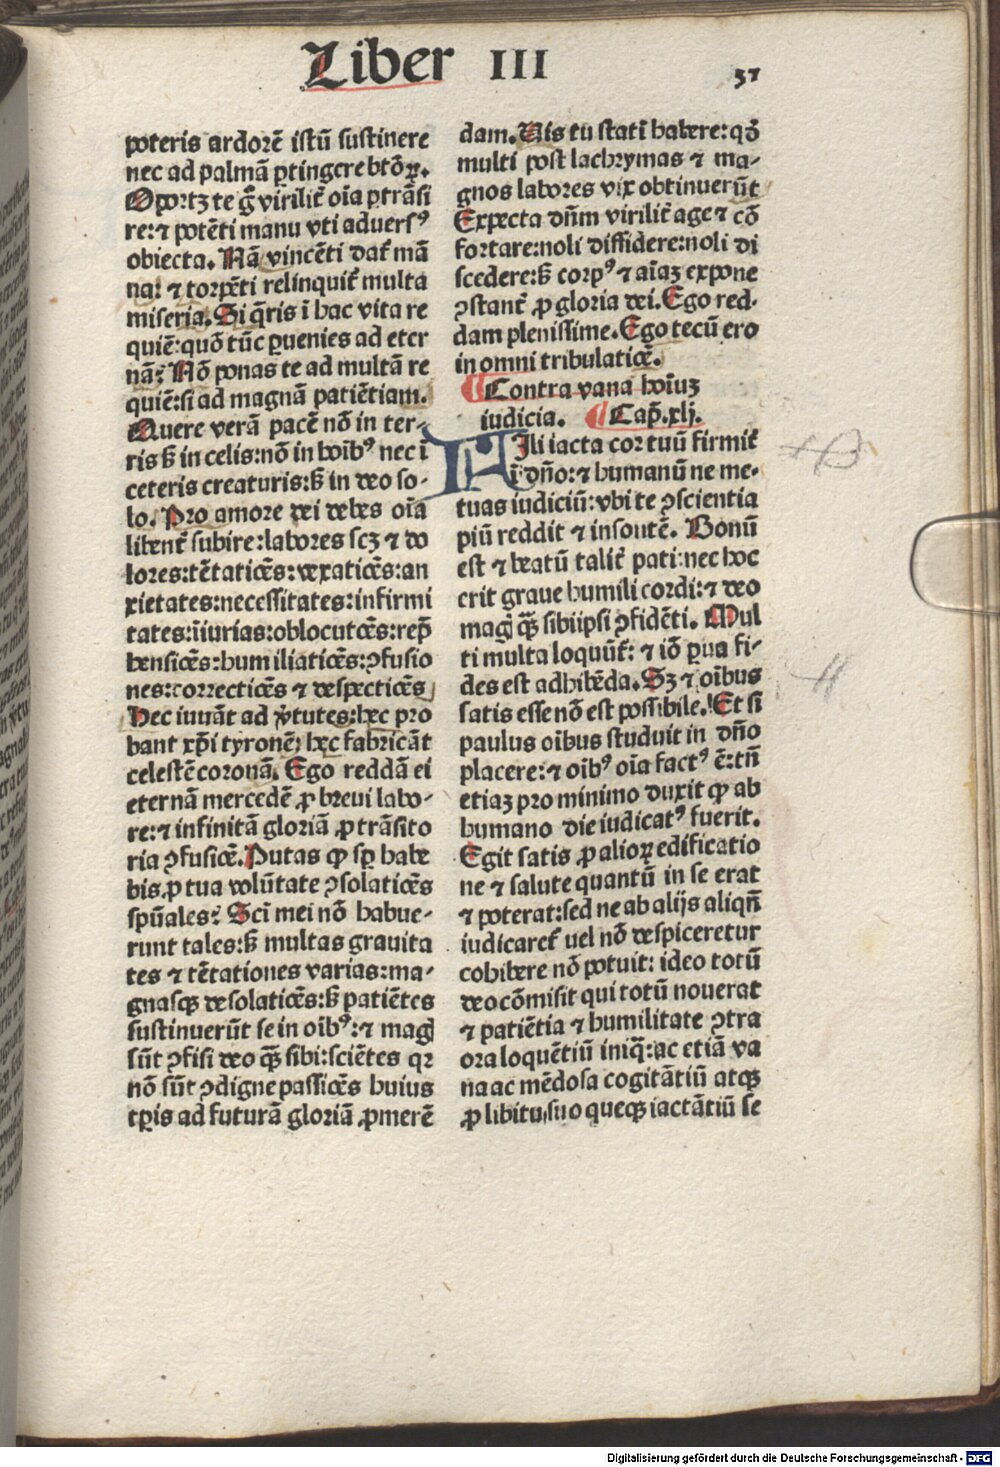 Liber III
57
poteris ardorē istū sustinere
nec ad palmā ꝑtingere btōꝝ.
Oportꝫ te gͦ virilit᷑ oīa ꝑtrāsi
re: ⁊ potēti manu vti aduersꝰ
obiecta. Nā vincēti dat᷑ mā
na: ⁊ torpēti relinquit᷑ multa
miseria. Si q̄ris ī hac vita re
quiē: quō tūc ꝑuenies ad eter
nā: Nō ponas te ad multā re
quiē: si ad magnā patiētiam.
Quere verā pacē nō in ter-
ris sꝫ in celis: nō in hoībꝰ nec ī
ceteris creaturis: sꝫ in deo so-
lo. Pro amore dei debes oīa
libent᷑ subire: labores scꝫ ⁊ do
lores: tētatiōes: vexatiōes: an
xietates: necessitates: infirmi
tates: iniurias: oblocutiōes: rep̄
hensiōes: humiliatiōes: ꝯfusio
nes: correctiōes ⁊ despectiōes
Hec iuuāt ad v̓tutes: hec pro
bant xp̄i tyronē: hec fabricāt
celestē coronā. Ego reddā ei
eternā mercedē ꝓ breui labo-
re: ⁊ infinitā gloriā ꝓ trāsito
ria ꝯfusiōe. Putas ꝙ sꝑ habe
bis ꝓ tua volūtate ꝯsolatiōes
spūales: Scī mei nō habue-
runt tales: sꝫ multas grauita
tes ⁊ tētationes varias: ma-
gnasqꝫ desolatiōes: sꝫ patiētes
sustinuerūt se in oībꝰ: ⁊ magꝭ
sūt ꝯfisi deo qꝫ sibi: sciētes qꝛ
nō sūt ꝯdigne passiōes huius
tꝑis ad futurā gloriā ꝓmerē
dam. Uis tu statī habere: qd̄
multi post lachrymas ⁊ ma-
gnos labores vix obtinuerūt
Expecta dn̄m virilit᷑ age ⁊ cō
fortare: noli diffidere: noli di
scedere: sꝫ corpꝰ ⁊ aīaꝫ expone
ꝯstant᷑ ꝓ gloria dei. Ego red-
dam plenissime. Ego tecū ero
in omni tribulatiōe.
Contra vana hoīuꝫ
iudicia. Cap̄. xlj.
Fili iacta cor tuū firmit᷑
ī dn̄o: ⁊ humanū ne me-
tuas iudiciū: vbi te ꝯscientia
piū reddit ⁊ insontē. Bonū
est ⁊ beatū talit᷑ pati: nec hoc
erit graue humili cordi: ⁊ deo
magꝭ qꝫ sibiipsi ꝯfidēti. Mul
ti multa loquūt᷑: ⁊ iō ꝑua fi-
des est adhibēda. Sꝫ ⁊ oībus
satis esse nō est possibile. Et si
paulus oībus studuit in dn̄o
placere: ⁊ oībꝰ oīa factꝰ ē: tn̄
etiaꝫ pro minimo duxit ꝙ ab
humano die iudicatꝰ fuerit.
Egit satis ꝓ alioꝝ edificatio
ne ⁊ salute quantū in se erat
⁊ poterat: sed ne ab alijs aliqn̄
iudicaret᷑ uel nō despiceretur
cohibere nō potuit: ideo totū
deo cōmisit qui totū nouerat
⁊ patiētia ⁊ humilitate ꝯtra
ora loquētiū iniq̄: ac etiā va
na ac mēdosa cogitātiū atqꝫ
ꝓ libitu suo queqꝫ iactātiū se
Digitalisierung gefördert durch die Deutsche Forschungsgemeinschaft - DFG